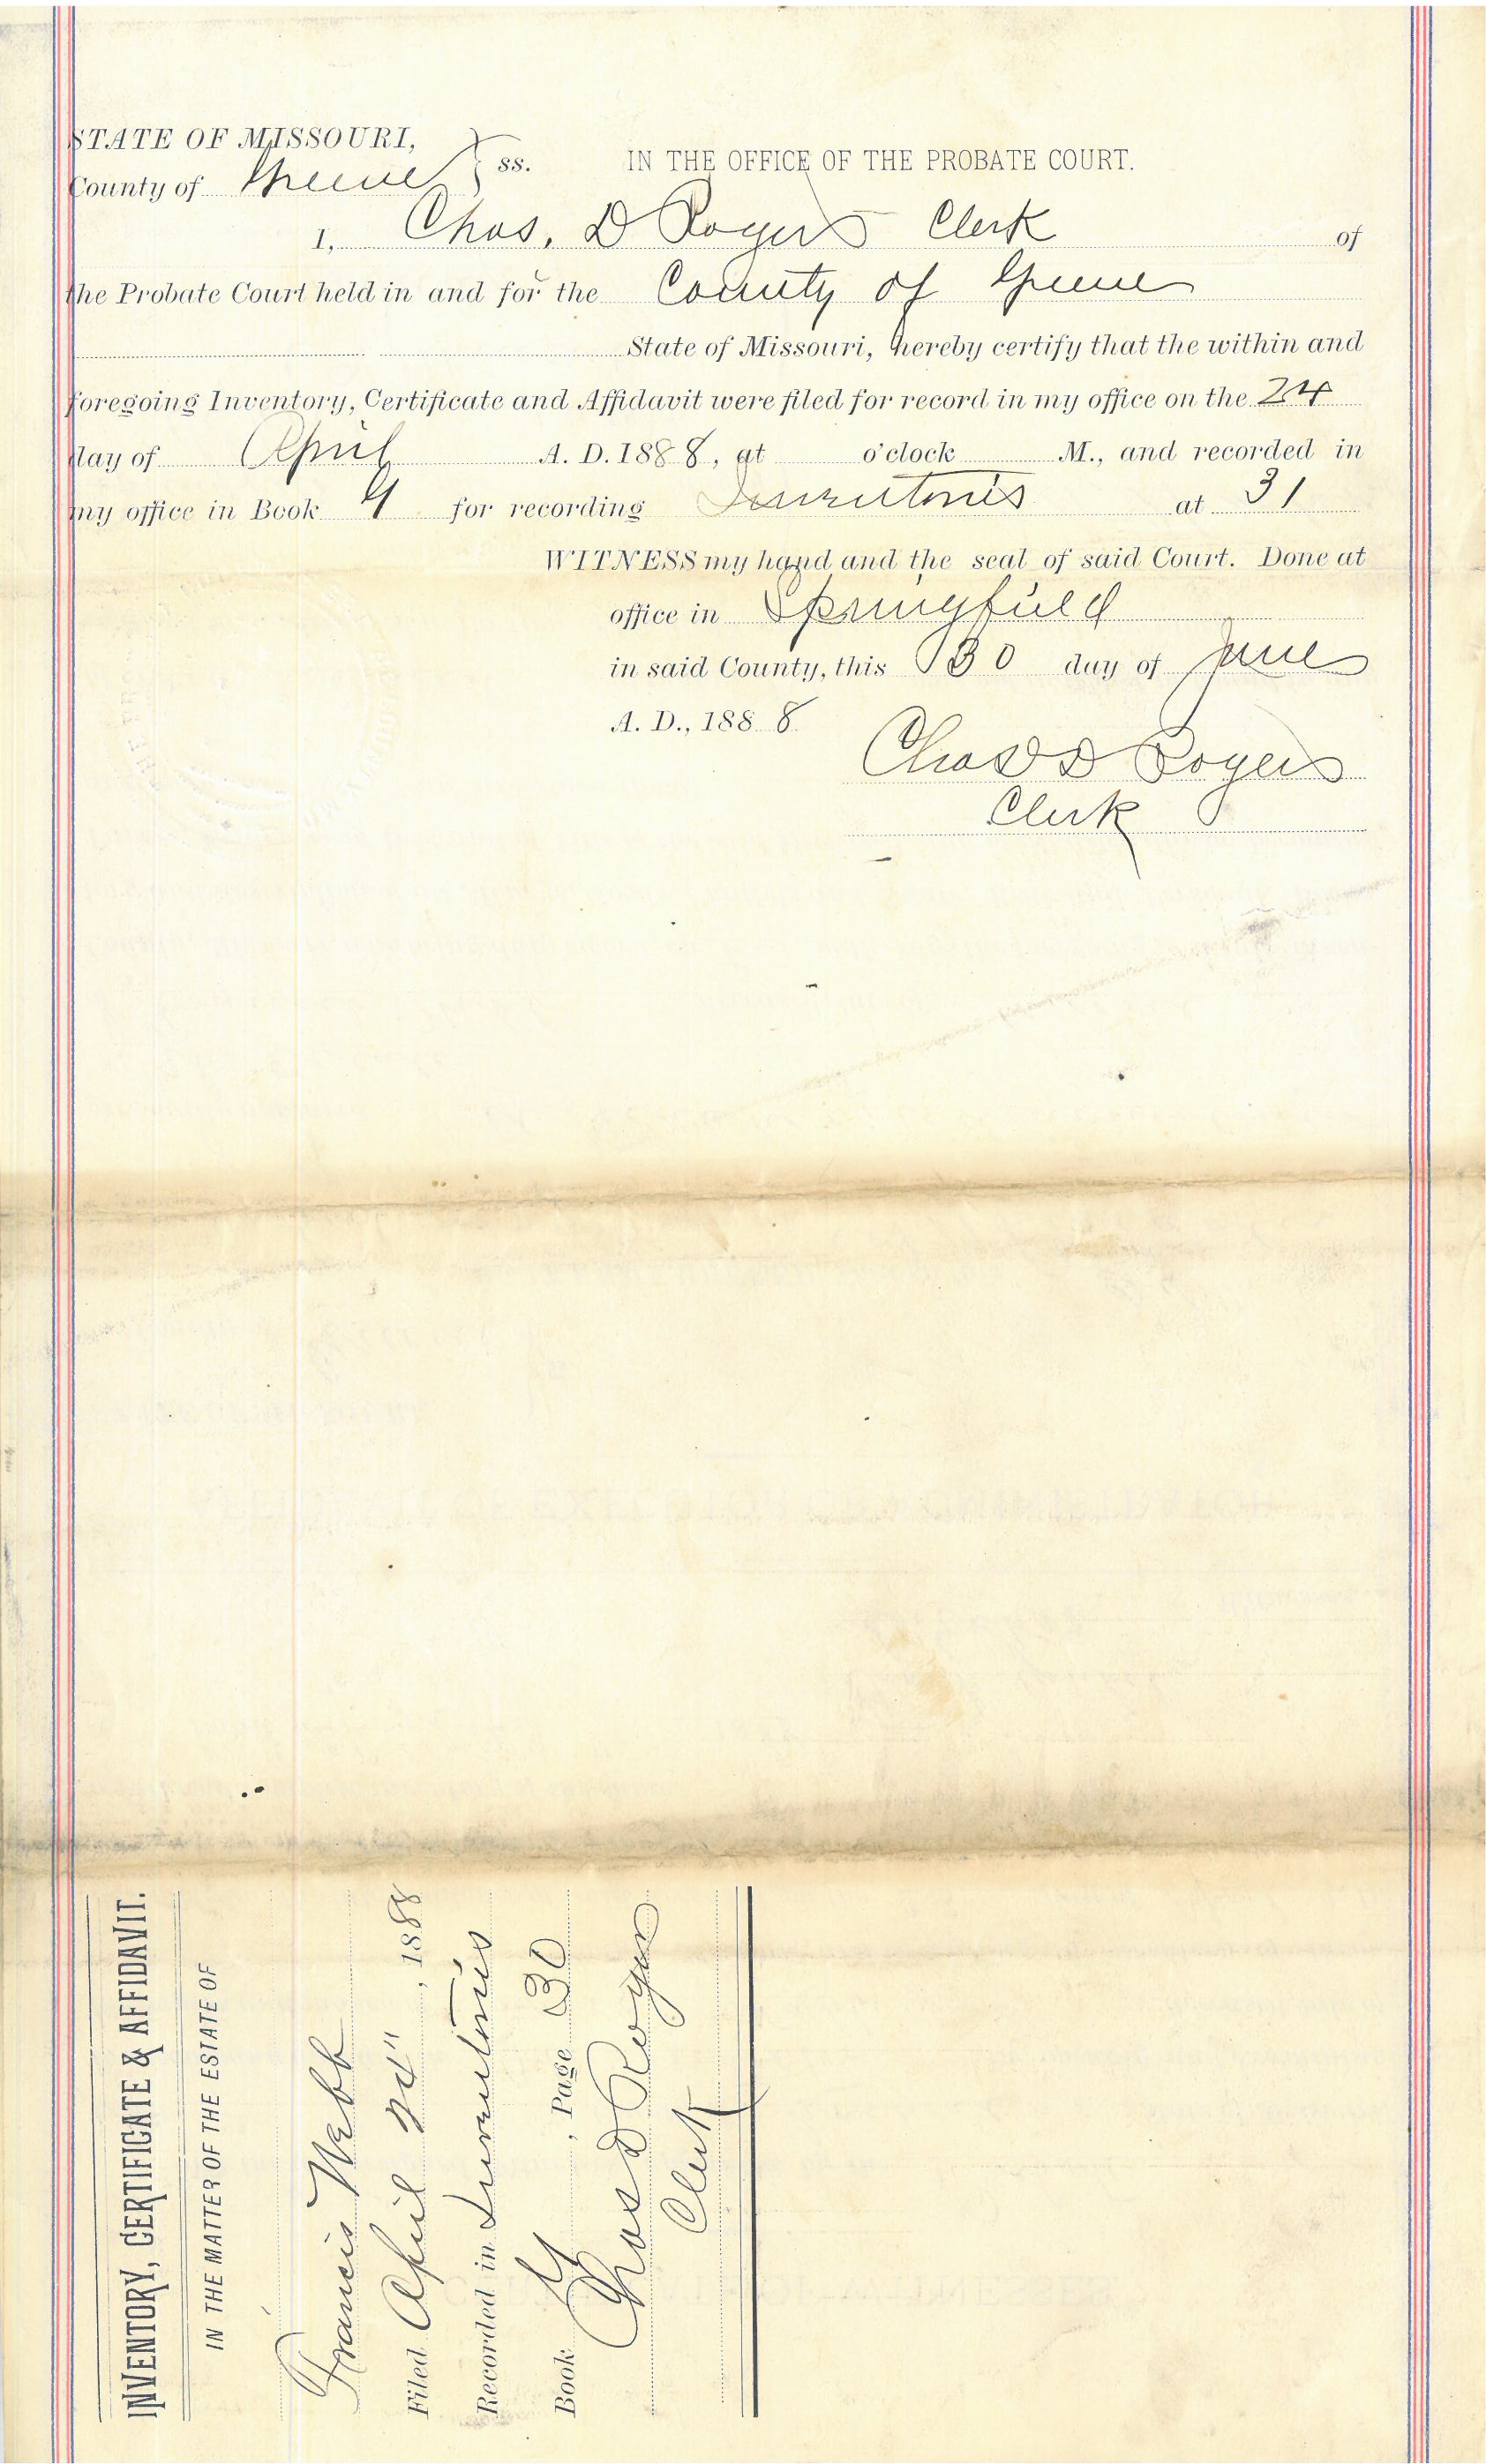 STATE OF MISSOURI,
County of Greene } ss. IN THE OFFICE OF THE PROBATE COURT.
I, Chas. D Rogers Clerk of
the Probate Court held in and for the County of Greene
State of Missouri, hereby certify that the within and
foregoing Inventory, Certificate and Affidavit were filed for record in my office on the 24
day of April A. D. 1888, at o'clock M., and recorded in
my office in Book for recording Inventories at 31
WITNESS my hand and the seal of said Court. Done at
office in Springfield
in said County, this 30 day of June
A. D., 1888
Chas D Rogers
Clerk
INVENTORY, CERTIFICATE & AFFIDAVIT.
IN THE MATTER OF THE ESTATE OF
Francis Webb
Filed April 24", 1888
Recorded in Inventories
Book , Page 30
Chas D Rogers
Clerk